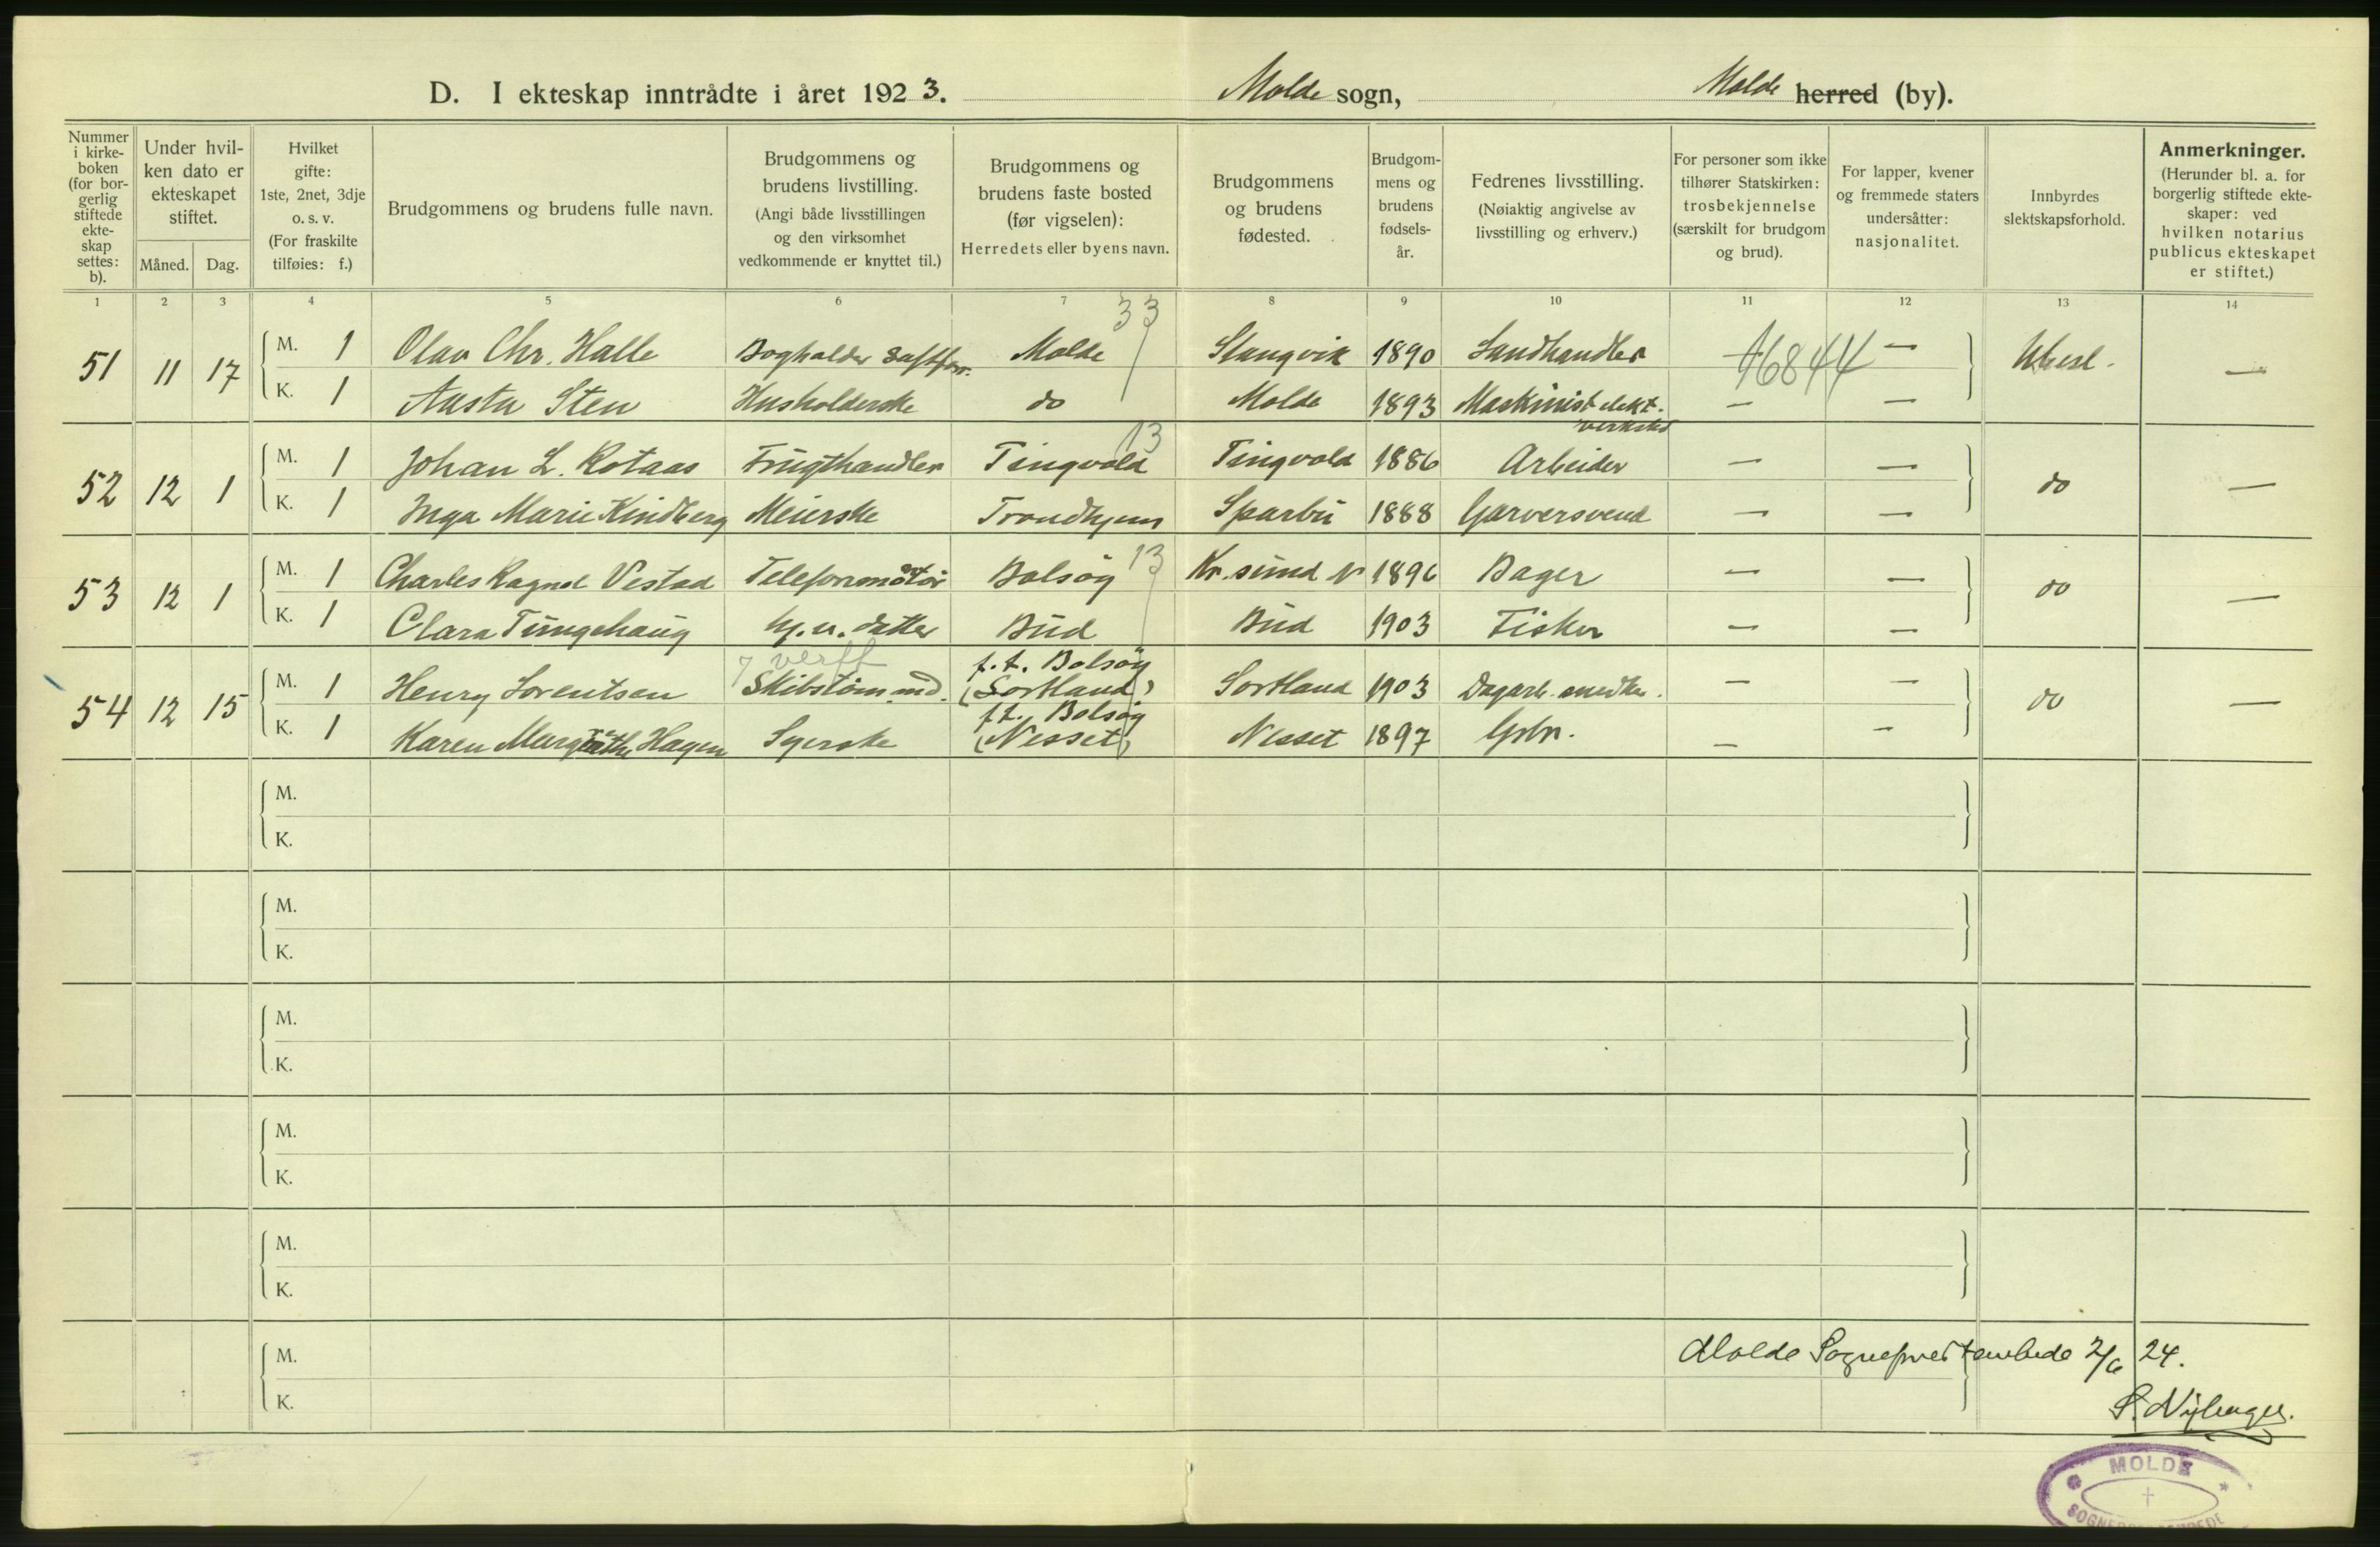 D. I ekteskap inntrådte i året 1923. Molde sogn, Molde herred (by).
Nummer i kirke-boken (for bor-gerlig stiftede ekte-skap settes: b).
Under hvil-ken dato er ekteskapet stiftet.
Måned. Dag.
Hvilket gifte: 1ste, 2net, 3dje o. s. v. (For fraskilte tilføies: f.)
Brudgommens og brudens fulle navn.
Brudgommens og brudens livstilling. (Angi både livsstillingen og den virksomhet vedkommende er knyttet til.)
Brudgommens og brudens faste bosted (før vigselen): Herredets eller byens navn.
Brudgommens og brudens fødested.
Brudgom-mens og brudens fødsels-år.
Fedrenes livsstilling. (Nøiaktig angivelse av livsstilling og erhverv.)
For personer som ikke tilhører Statskirken: trosbekjennelse (særskilt for brudgom og brud).
For lapper, kvener og fremmede staters undersåtter: nasjonalitet.
Innbyrdes slektskapsforhold.
Anmerkninger. (Herunder bl. a. for borgerlig stiftede ekte-skaper: ved hvilken notarius publicus ekteskapet er stiftet.)
1 2 3 4 5 6 7 8 9 10 11 12 13 14
33
51 11 17 M. 1 Olav Chr. Halle Bogholder Saftfor. Molde Stangvik 1890 Landhandler — 16844 —
K. 1 Aasta Sten Husholderske do Molde 1893 Maskinist elekt. verksted — — —
13
52 12 1 M. 1 Johan L. Rotaas Frugthandler Tingvold Tingvold 1886 Arbeider — — do —
K. 1 Inga Marie Kindberg Meierske Trondhjem Sparbu 1888 Garversvend — —
13
53 12 1 M. 1 Charles Ragnd Vestad Telefonmontør Bolsøy Kr.sund N 1896 Bager — — do —
K. 1 Clara Tungehaug hj.v. datter Bud Bud 1903 Fisker — —
7 verft
54 12 15 M. 1 Henry Lorentsen Skibstømmd. f.t. Bolsøy (Sortland) Sortland 1903 Dagarb. snedker. — — do —
K. 1 Karen Margrethe Hagen Syerske f.t. Bolsøy (Nesset) Nesset 1897 Gbr. — —
M.
K.
M.
K.
M.
K.
M.
K.
M.
K.
M. Molde Sogneprestembede 2/6 24.
K.
MOLDE